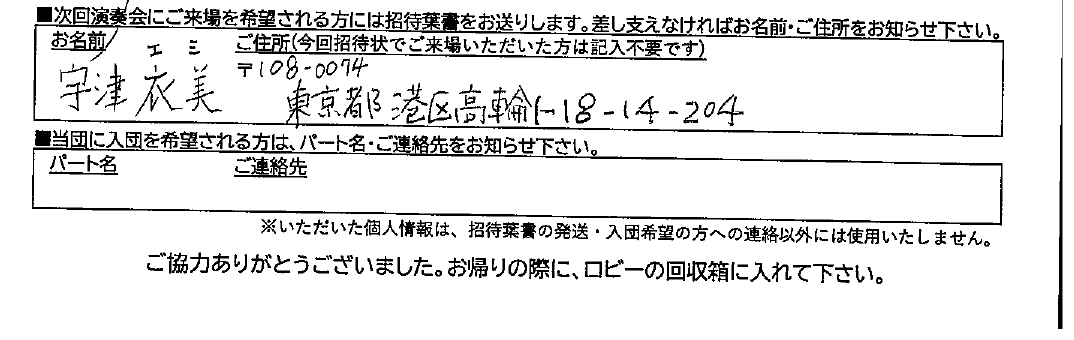 ■次回演奏会にご来場を希望される方には招待葉書をお送りします。差し支えなければお名前・ご住所をお知らせ下さい。
お名前 ご住所(今回招待状でご来場いただいた方は記入不要です)
エミ
宇津衣美
〒108-0074
東京都港区高輪1-18-14-204
■当団に入団を希望される方は、パート名・ご連絡先をお知らせ下さい。
パート名 ご連絡先
※いただいた個人情報は、招待葉書の発送・入団希望の方への連絡以外には使用いたしません。
ご協力ありがとうございました。お帰りの際に、ロビーの回収箱に入れて下さい。